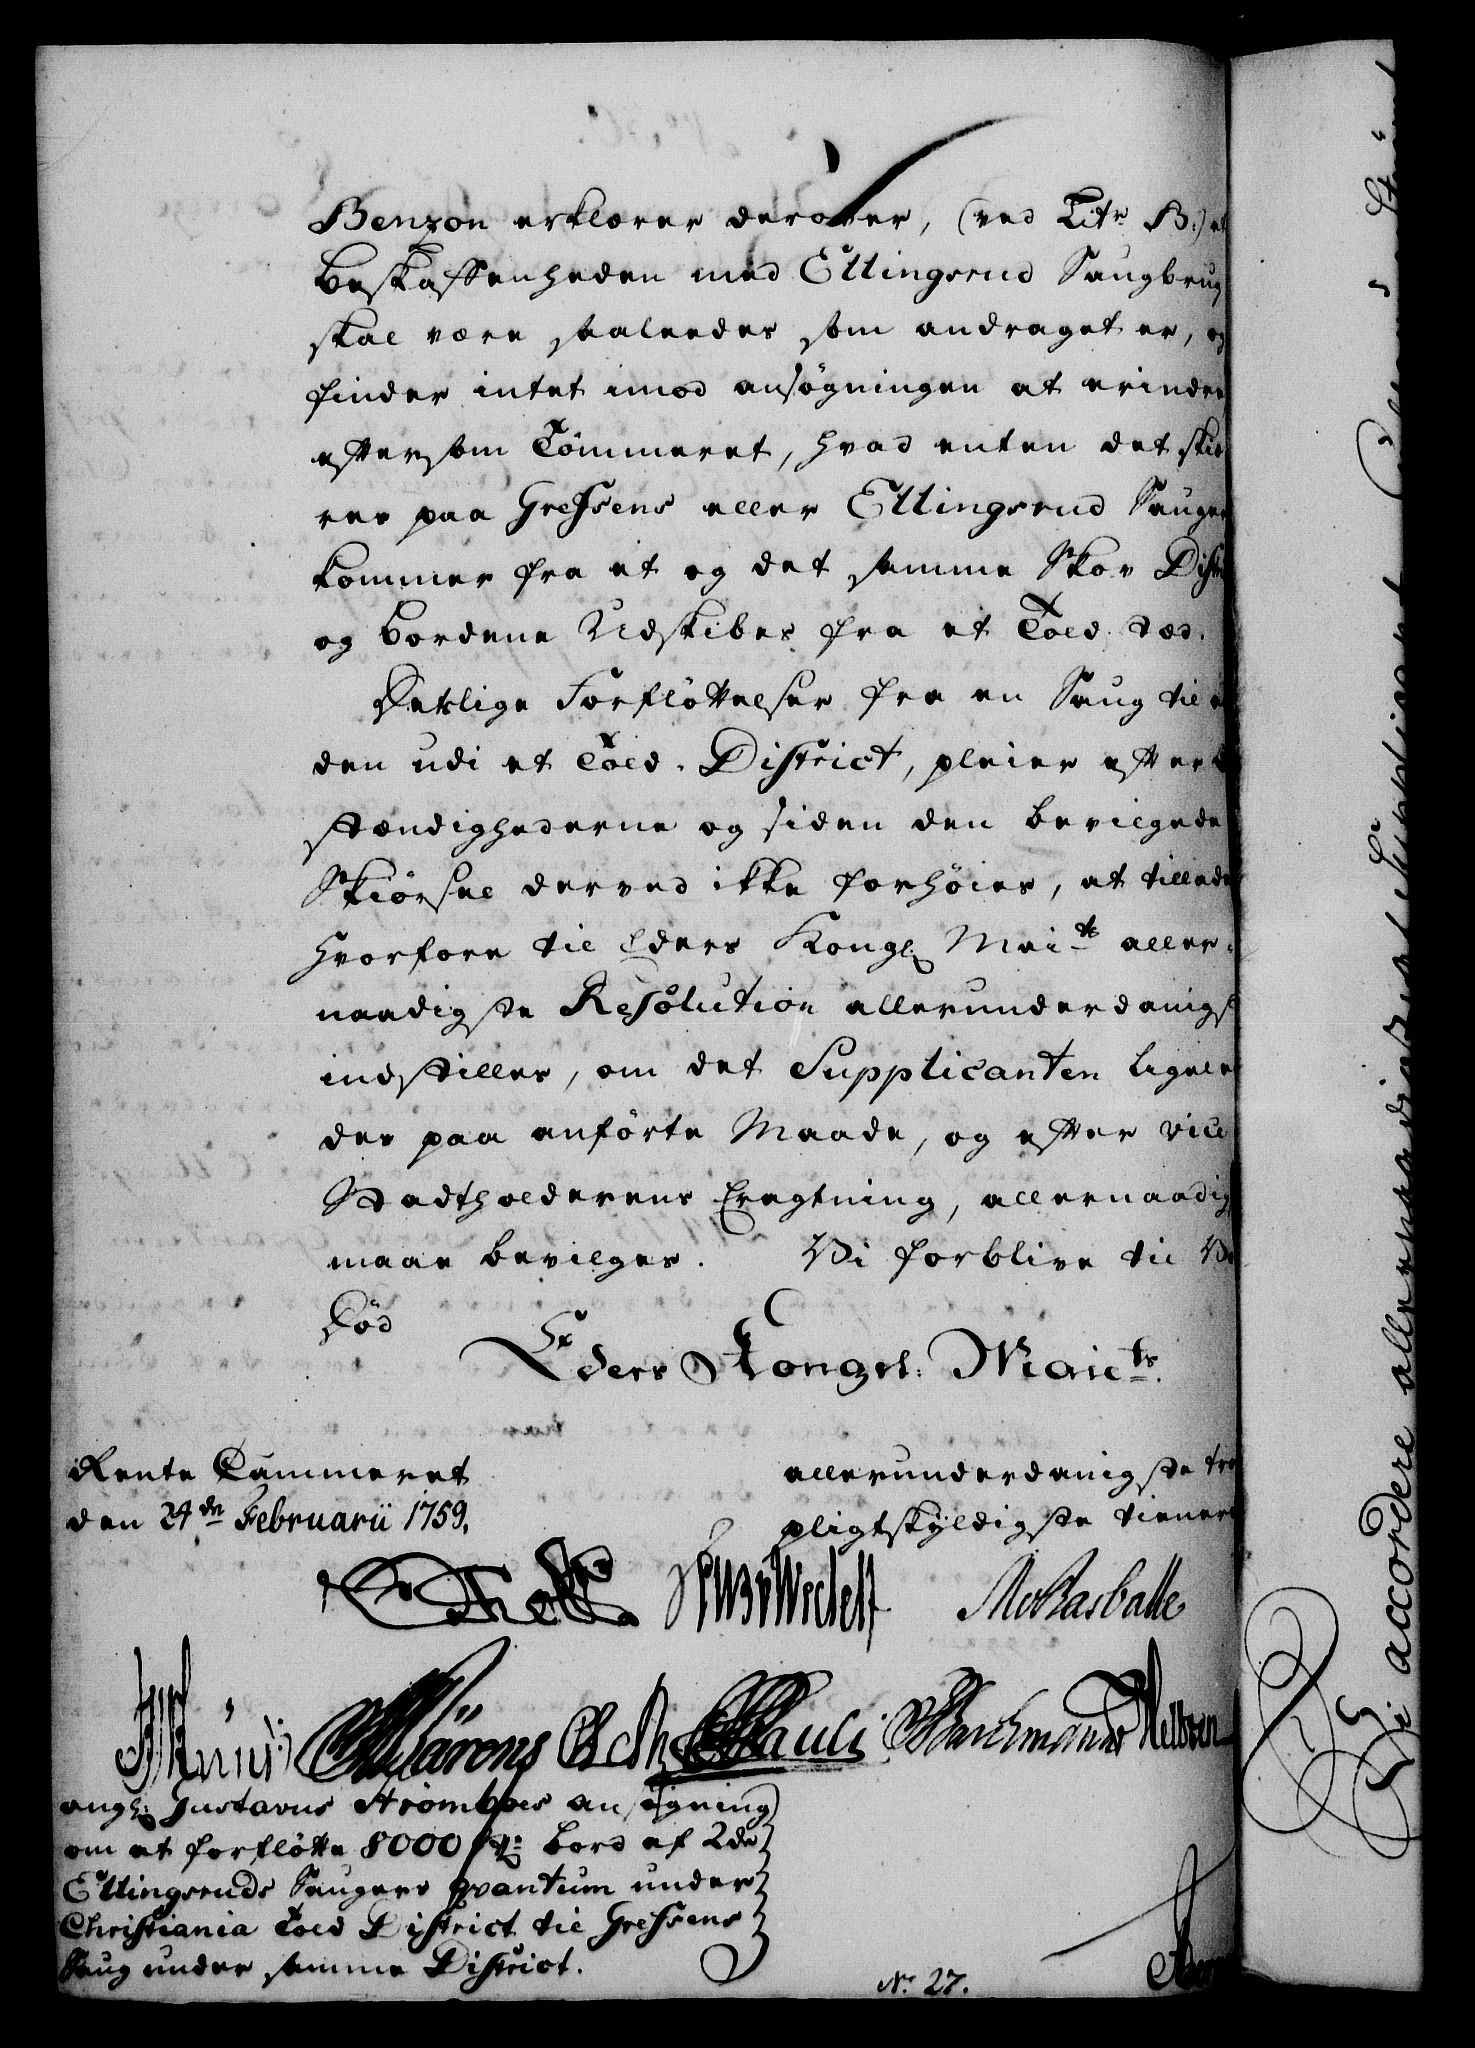 Benzon erklærer derover, (ved Litr B:) at
Beskaffenheden med Ellingsrud Saugbrug
skal være saaledes som andraget er, og
finder intet imod ansøgningen at erindre
eftersom Tömmeret, hvad enten det skiæ
res paa Grefsens eller Ellingsrud Sauger
kommer fra et og det samme Skov Distr
og Bordene Udskibes fra et Told-Sted.
Deslige Forflöttelser fra en Saug til
den udi et Told-District, pleier efter
stændighederne og siden den bevilgede
Skiörsel derved ikke forhöies, at tillade
hvorfore til Eders Kongl Mai-ts aller-
naadigste Resolution allerunderdanigst
indstilles, om det Supplicanten ligele
des paa anförte Maade, og efter vice
Stadtholderens Eragtning, allernaadigst
maae bevilges. Vi forblive til
Död
Eders Kongel: Maits.
Rente Cammeret
den 24de Februarii 1759.
allerunderdanigste
pligtskyldigste tienere
angl: Gustavus Strömboes ansögning
om at forflötte 8000 st: bord af 2de
Ellingsruds Saugers qvantum under
Christiania Told District til Grefsens
Saug under samme District.
No 27.
Vi accordere allernaadigst at Supplicanten